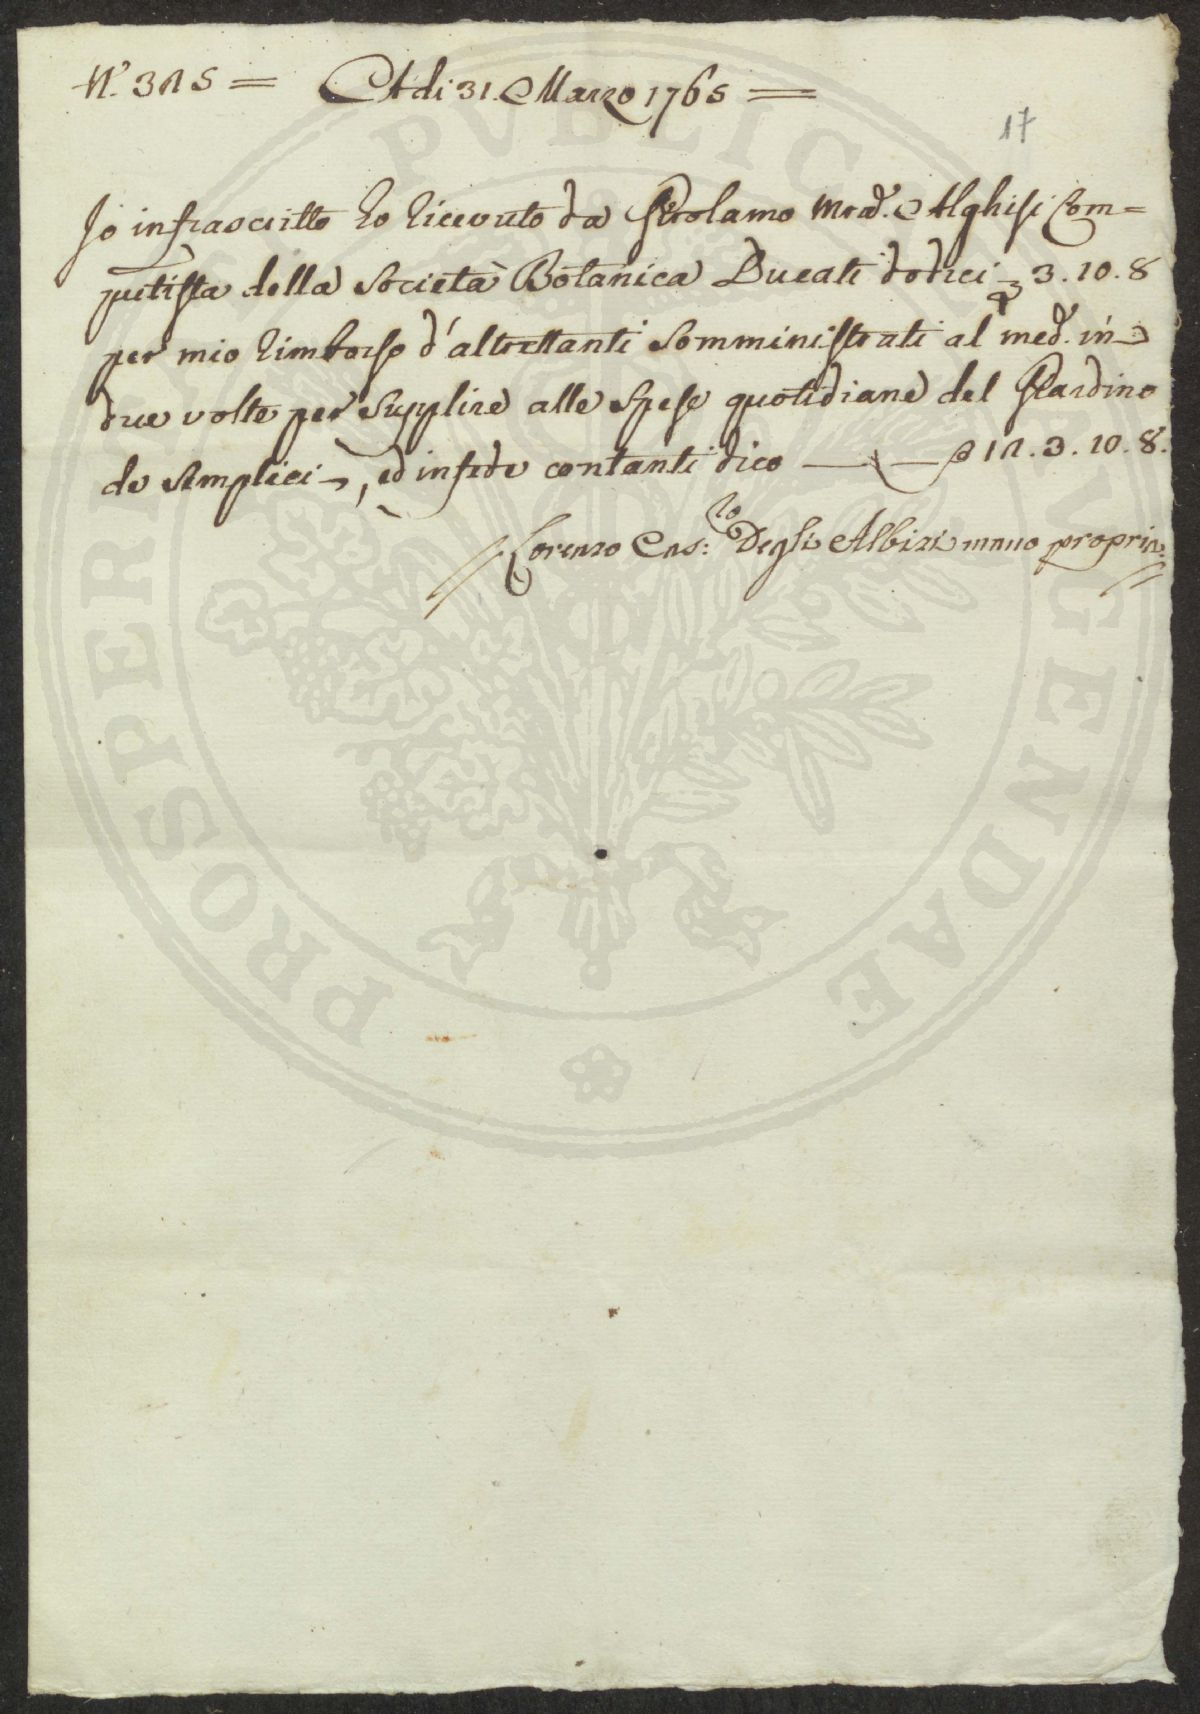 N.° 325 = Adi 31. Marzo 1765 =
17
Io infrascritto ho ricevuto da Girolamo Alghisi Com=
putista della Società Botanica Ducati dodici 3. 10. 8
per mio rimborso d'altrettanti somministrati al med.° in
due volte per supplire alle spese quotidiane del Giardino
de Semplici, ed in fede contanti dico — 12. 3. 10. 8.
Lorenzo Cas: Degli Albizi mano propria
PROSPERITATI PVBLICAE AVGENDAE